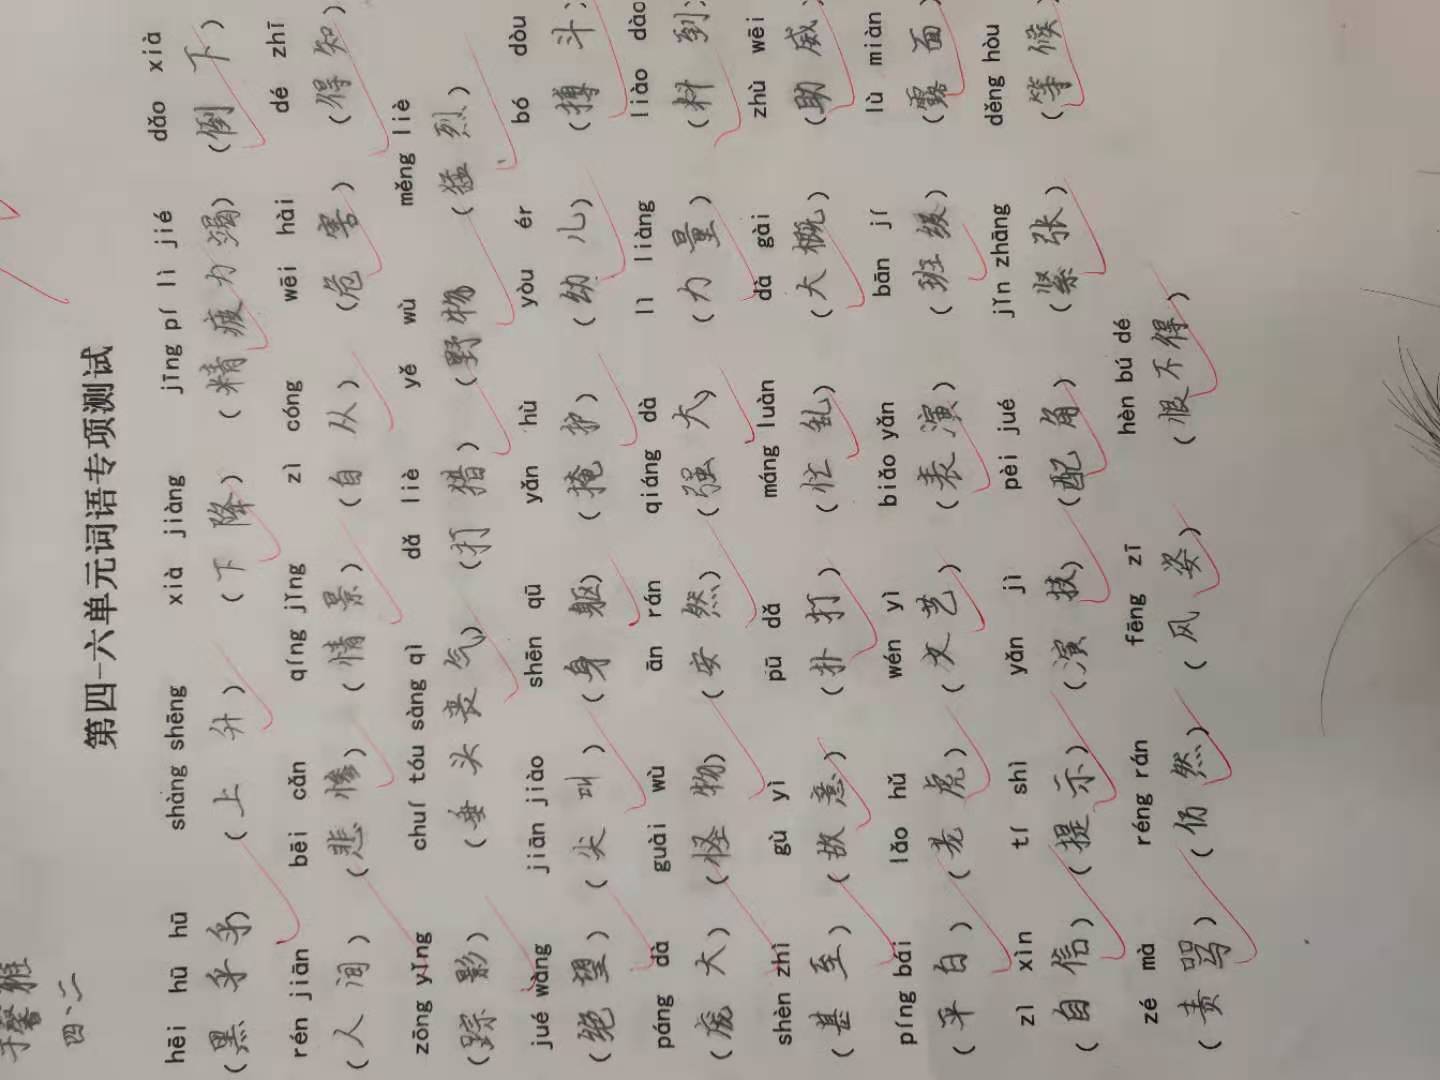 四.二
第四-六单元词语专项测试
hēi hū hū shàng shēng xià jiàng jīng pí lì jié dǎo xià
(黑乎乎) (上升) (下降) (精疲力竭) (倒下)
rén jiān bēi cǎn qíng jǐng zì cóng wēi hài dé zhī
(人间) (悲惨) (情景) (自从) (危害) (得知)
zōng yǐng chuí tóu sàng qì dǎ liè yě wù měng liè
(踪影) (垂头丧气) (打猎) (野物) (猛烈)
jué wàng jiān jiào shēn qū yǎn hù yòu ér bó dòu
(绝望) (尖叫) (身躯) (掩护) (幼儿) (搏斗)
páng dà guài wù ān rán qiáng dà lì liàng liào dào
(庞大) (怪物) (安然) (强大) (力量) (料到)
shèn zhì gù yì pū dǎ máng luàn dà gài zhù wēi
(甚至) (故意) (扑打) (忙乱) (大概) (助威)
píng bái lǎo hǔ wén yì biǎo yǎn bān jí lù miàn
(平白) (老虎) (文艺) (表演) (班级) (露面)
zì xìn tí shì yǎn jì pèi jué jǐn zhāng děng hòu
(自信) (提示) (演技) (配角) (紧张) (等候)
zé mà réng rán fēng zī hèn bú dé
(责骂) (仍然) (风姿) (恨不得)